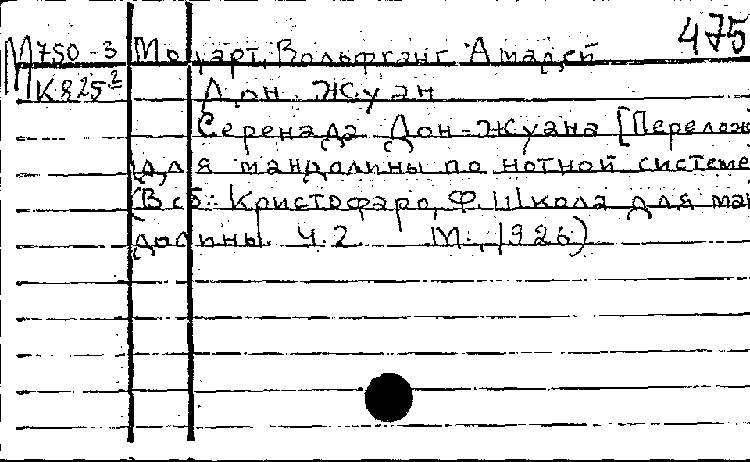 475
М 750-3 Моцарт, Вольфганг Амадей
К825² Дон Жуан
Серенада Дон-Жуана [Перелож
для мандолины по нотной системе
(В сб: Кристофаро, Ф. Школа для ман
долины. Ч.2. М., 1926)